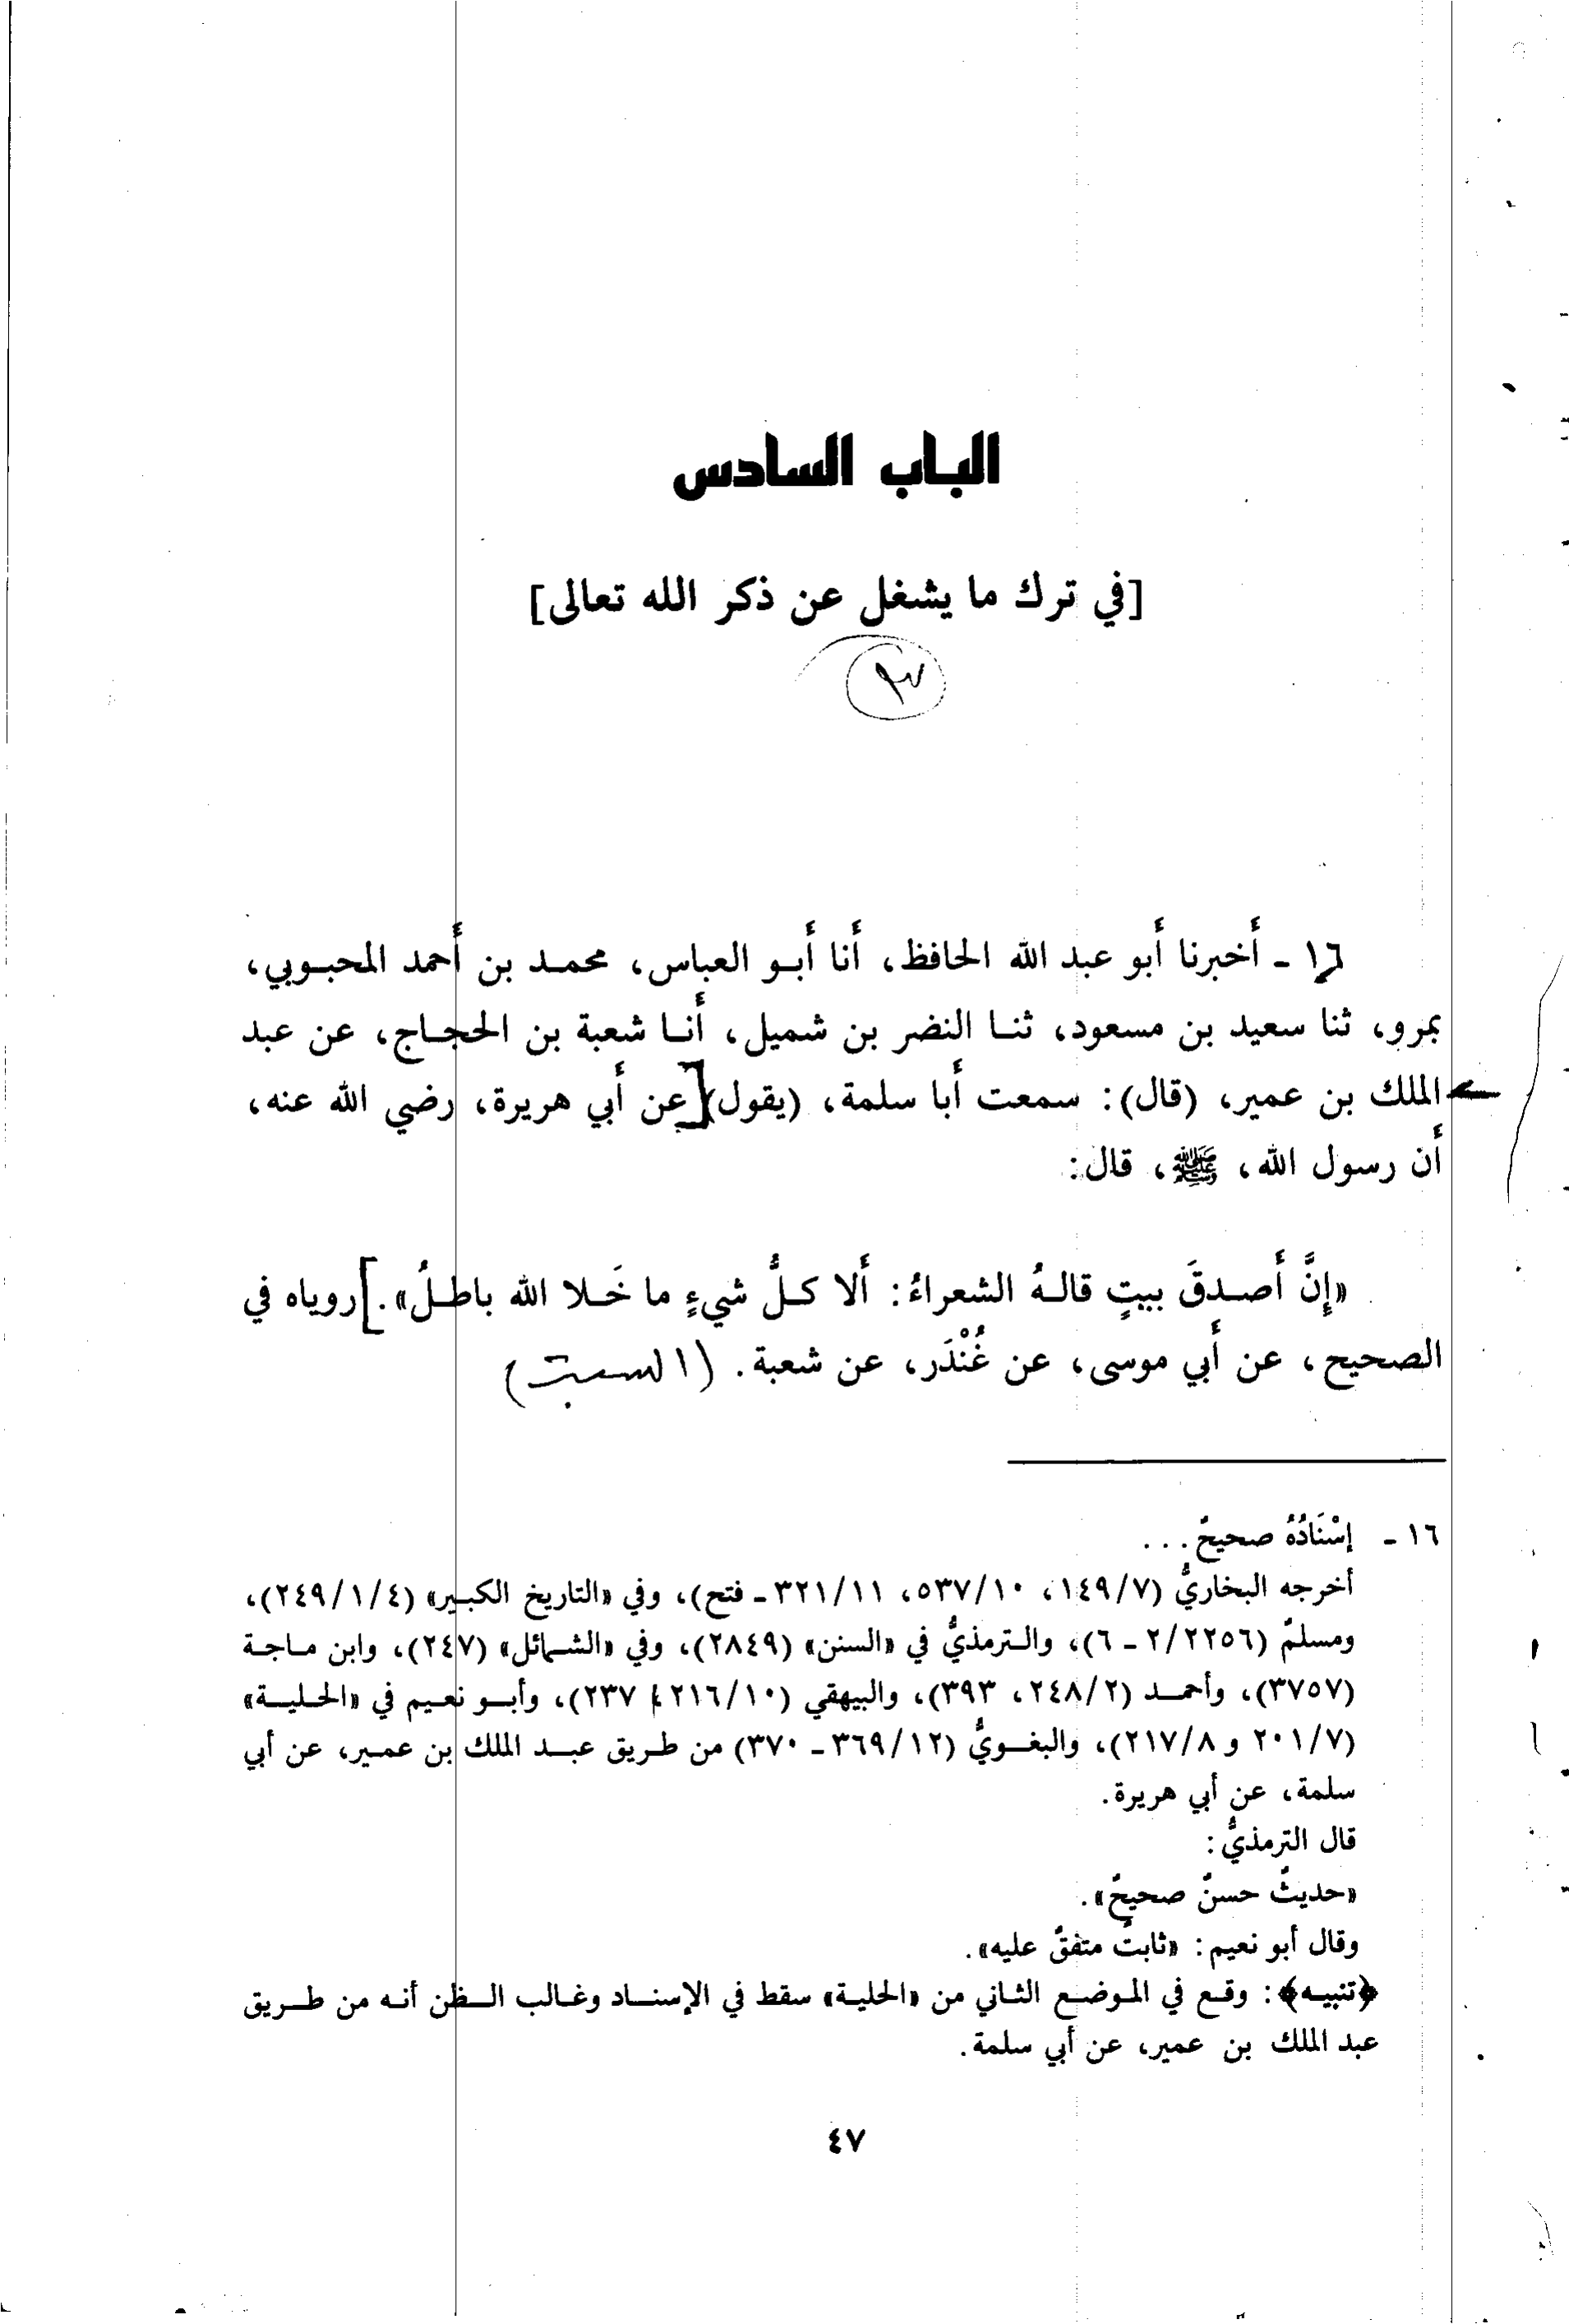 الباب السادس
[في ترك ما يشغل عن ذكر الله تعالى]
١٦ - أخبرنا أبو عبد الله الحافظ، أنا أبو العباس، محمد بن أحمد المحبوبي،
بمرو، ثنا سعيد بن مسعود، ثنا النضر بن شميل، أنا شعبة بن الحجاج، عن عبد
الملك بن عمير، (قال): سمعت أبا سلمة، (يقول) [عن أبي هريرة، رضي الله عنه،
أن رسول الله، ﷺ، قال:
«إِنَّ أَصدقَ بيتٍ قالهُ الشعراءُ: أَلا كلُّ شيءٍ ما خَلا الله باطلُ».] روياه في
الصحيح، عن أبي موسى، عن غُنْدَر، عن شعبة. (السبت)
١٦ - إسْنَادُهُ صحيحٌ...
أخرجه البخاريُّ (١٤٩/٧، ٥٣٧/١٠، ٣٢١/١١ - فتح)، وفي «التاريخ الكبير» (٢٤٩/١/٤)،
ومسلمٌ (٢/٢٢٥٦ - ٦)، والترمذيُّ في «السنن» (٢٨٤٩)، وفي «الشمائل» (٢٤٧)، وابن ماجة
(٣٧٥٧)، وأحمد (٢٤٨/٢، ٣٩٣)، والبيهقي (٢١٦/١٠، ٢٣٧)، وأبو نعيم في «الحلية»
(٢٠١/٧ و ٢١٧/٨)، والبغويُّ (٣٦٩/١٢ - ٣٧٠) من طريق عبد الملك بن عمير، عن أبي
سلمة، عن أبي هريرة.
قال الترمذيُّ:
«حديثٌ حسنٌ صحيحٌ».
وقال أبو نعيم: «ثابتٌ متفقٌ عليه».
﴿تنبيه﴾: وقع في الموضع الثاني من «الحلية» سقط في الإسناد وغالب الظن أنه من طريق
عبد الملك بن عمير، عن أبي سلمة.
٤٧